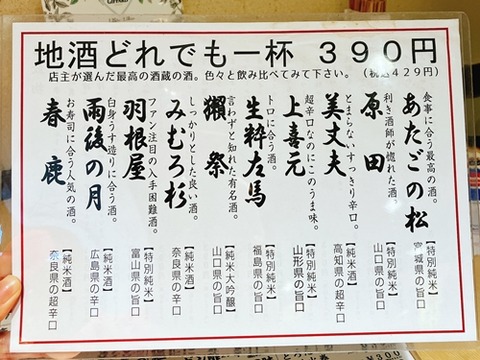 地酒どれでも一杯 390円
店主が選んだ最高の酒蔵の酒。色々と飲み比べてみて下さい。(税込429円)
食事に合う最高の酒。
あたごの松
【特別純米】
宮城県の旨口
利き酒師が惚れた酒。
原田
【特別純米】
山口県の旨口
とまらないすっきり辛口。
美丈夫
【純米酒】
高知県の超辛口
超辛口なのにこのうま味。
上喜元
【特別純米】
山形県の旨口
トロに合う酒。
生粋左馬
【特別純米】
福島県の旨口
言わずと知れた有名酒。
獺祭
【純米大吟醸】
山口県の旨口
しっかりとした良い酒。
みむろ杉
【純米酒】
奈良県の辛口
ファン注目の入手困難酒。
羽根屋
【特別純米】
富山県の旨口
白身うす造りに合う酒。
雨後の月
【純米酒】
広島県の辛口
お寿司に合う人気の酒。
春鹿
【純米酒】
奈良県の超辛口